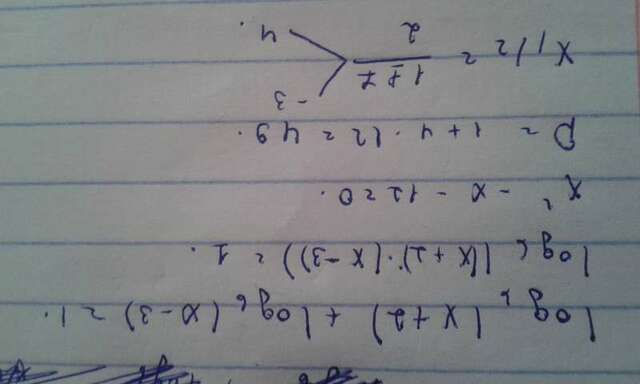 log₆ (x+2) + log₆ (x-3) = 1.
log₆ ((x+2)·(x-3)) = 1.
x² - x - 12 = 0.
D = 1+4·12 = 49.
x 1/2 = (1±7)/2
-3
4.